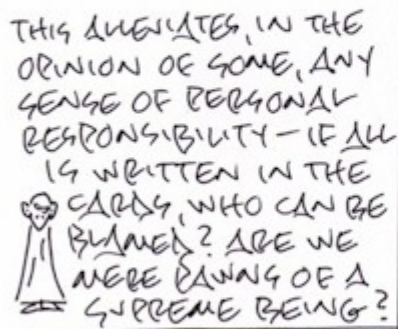 THIS ALLEVIATES, IN THE
OPINION OF SOME, ANY
SENSE OF PERSONAL
RESPONSIBILITY – IF ALL
IS WRITTEN IN THE
CARDS, WHO CAN BE
BLAMED? ARE WE
MERE PAWNS OF A
SUPREME BEING?